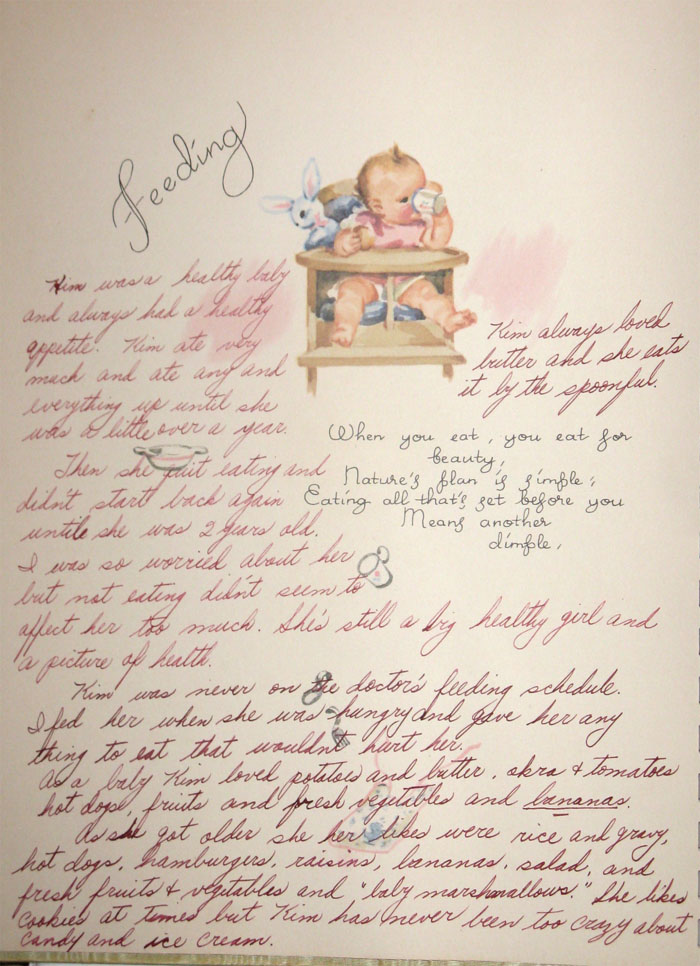 Feeding
Kim was a healthy baby
and always had a healthy
appetite. Kim ate very
much and ate any and
everything up until she
was a little over a year.
Then she quit eating and
didn't start back again
until she was 2 years old.
I was so worried about her
but not eating didn't seem to
affect her too much. She's still a big healthy girl and
a picture of health.
Kim always loved
butter and she eats
it by the spoonful.
When you eat, you eat for
beauty,
Nature's plan is simple;
Eating all that's set before you
Means another
dimple.
Kim was never on the doctor's feeding schedule.
I fed her when she was hungry and gave her any
thing to eat that wouldn't hurt her.
As a baby Kim loved potatoes and butter, okra & tomatoes
hot dogs, fruits and fresh vegetables and bananas.
As she got older she her likes were rice and gravy,
hot dogs, hamburgers, raisins, bananas, salad, and
fresh fruits & vegetables and "baby marshmallows." She likes
cookies at times but Kim has never been too crazy about
candy and ice cream.